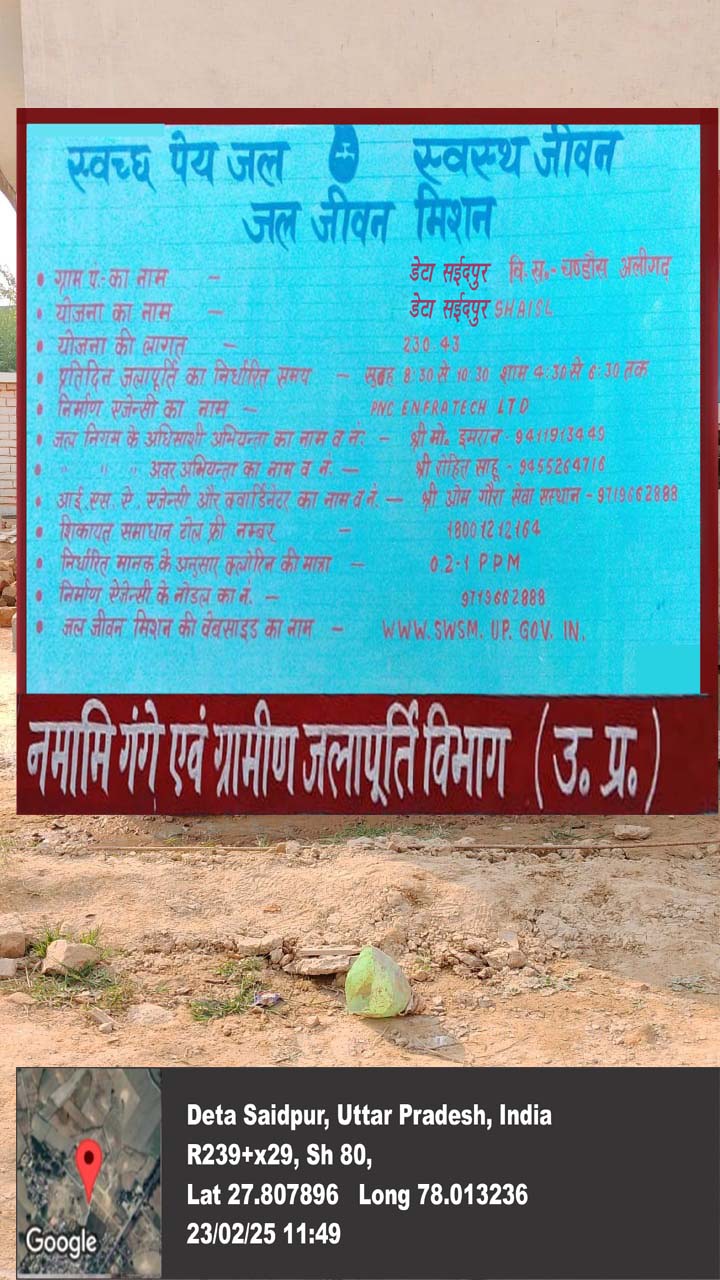 स्वच्छ पेय जल स्वस्थ जीवन
जल जीवन मिशन
• ग्राम पं॰ का नाम - डेटा सईदपुर वि.ख.- चण्डौस अलीगढ़
• योजना का नाम - डेटा सईदपुर SHAISL
• योजना की लागत - 230.43
• प्रतिदिन जलापूर्ति का निर्धारित समय - सुबह 8:30 से 10:30 शाम 4:30 से 6:30 तक
• निर्माण एजेन्सी का नाम - PNC ENFRATECH LTD
• जल निगम के अधिशाषी अभियन्ता का नाम व नं॰ - श्री मो॰ इमरान - 9411913449
• " " " अवर अभियन्ता का नाम व नं. - श्री रोहित साहू - 9455264716
• आई.एस.ए. एजेन्सी और क्वार्डिनेटर का नाम व नं. - श्री ओम गौरा सेवा संस्थान - 9719662888
• शिकायत समाधान टोल फ्री नम्बर - 18001212164
• निर्धारित मानक के अनुसार क्लोरिन की मात्रा - 0.2-1 PPM
• निर्माण ऐजेन्सी के नोडल का नं. - 9719662888
• जल जीवन मिशन की वेबसाइड का नाम - WWW.SWSM.UP.GOV.IN.
नमामि गंगे एवं ग्रामीण जलापूर्ति विभाग (उ॰ प्र॰)
Deta Saidpur, Uttar Pradesh, India
R239+x29, Sh 80,
Lat 27.807896 Long 78.013236
23/02/25 11:49
Google